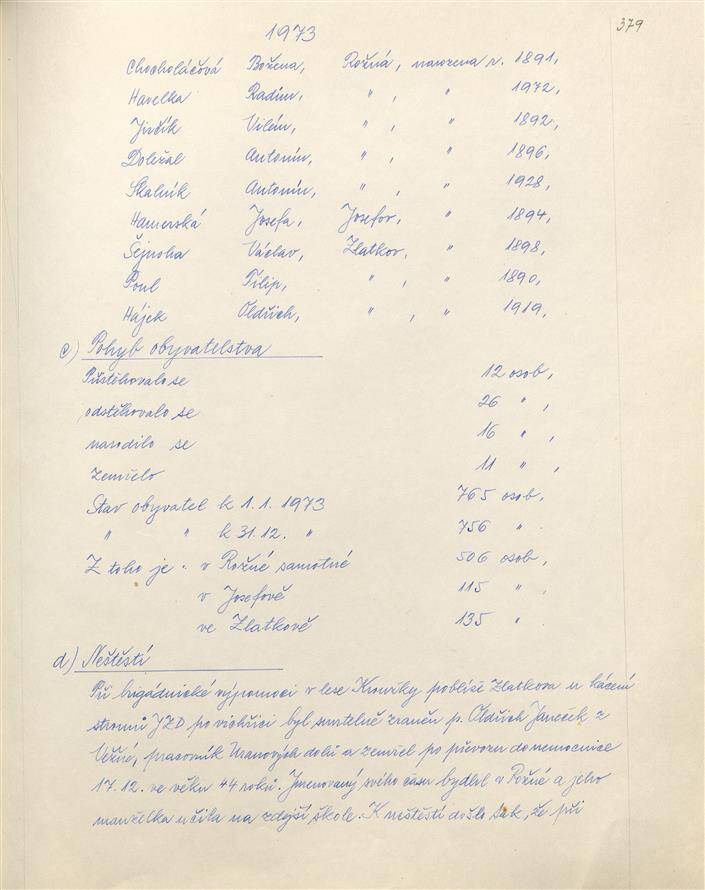 1973
379
Chocholáčová Božena, Rožná, narozena r. 1891,
Havelka Radim, " , " 1972,
Jirčík Vilém, " , " 1892,
Doležal Antonín, " , " 1896,
Skalník Antonín, " , " 1928,
Hamerská Josefa, Josefov, " 1894,
Šejnoha Václav, Zlatkov, " 1898,
Poul Filip, " , " 1890,
Hájek Oldřich, " , " 1919,
c) Pohyb obyvatelstva
Přistěhovalo se 12 osob,
odstěhovalo se 26 " ,
narodilo se 16 " ,
zemřelo 11 " ,
Stav obyvatel k 1.1. 1973 765 osob,
" " k 31.12. " 756 " .
Z toho je : v Rožné samotné 506 osob,
v Josefově 115 "
ve Zlatkově 135 " .
d) Neštěstí
Při brigádnické výpomoci v lese poblíže Zlatkova u kácení
stromů JZD po vichřici byl smrtelně zraněn p. Oldřich Janeček z
Věžné, pracovník Uranových dolů a zemřel po převozu do nemocnice
17.12. ve věku 44 roků. Jmenovaný svého času bydlel v Rožné a jeho
manželka učila na zdejší škole. K neštěstí došlo tak, že při